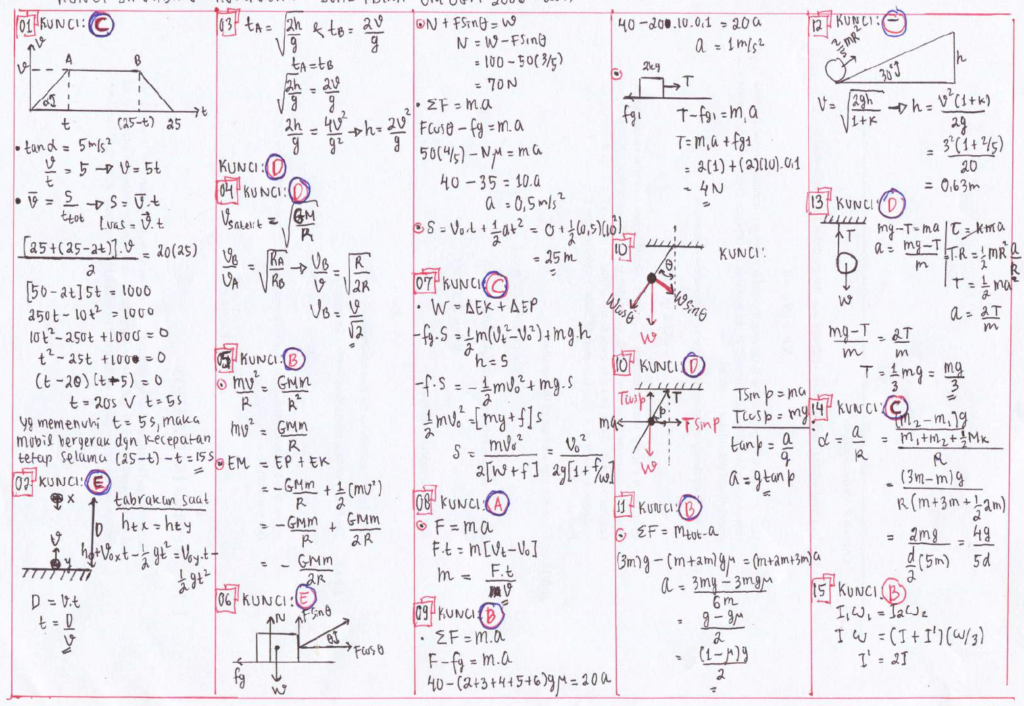 01 KUNCI: C
V
V
A
B
α
t
(25-t) 25
t
• tan α = 5 m/s²
V/t = 5 → V = 5t
• V̄ = S/t_tot → S = V̄.t
Luas = V̄.t
[25+(25-2t)].V / 2 = 20(25)
[50-2t]5t = 1000
250t - 10t² = 1000
10t² - 250t + 1000 = 0
t² - 25t + 100 = 0
(t-20)(t-5) = 0
t = 20s V t = 5s
yg memenuhi t = 5s, maka
mobil bergerak dgn kecepatan
tetap selama (25-t)-t = 15s
02 KUNCI: E
x
D
V
y
tabrakan saat
htx = hty
h₀+V₀xt - ½gt² = V₀yt -
½gt²
D = V.t
t = D/V
03 tA = √(2h/g) & tB = 2V/g
tA = tB
√(2h/g) = 2V/g
2h/g = 4V²/g² → h = 2V²/g
KUNCI: D
04 KUNCI: D
Vsatelit = √(GM/R)
VB/VA = √(RA/RB) → VB/V = √(R/2R)
VB = V/√2
05 KUNCI: B
• mV²/R = GMm/R²
mV² = GMm/R
• EM = EP + EK
= -GMm/R + ½(mV²)
= -GMm/R + GMm/2R
= - GMm/2R
06 KUNCI: E
N
Fsinθ
θ
Fcosθ
fg
W
• N + Fsinθ = W
N = W - Fsinθ
= 100 - 50(3/5)
= 70N
• ΣF = m.a
Fcosθ - fg = m.a
50(4/5) - Nμ = ma
40 - 35 = 10.a
a = 0,5 m/s²
• S = V₀.t + ½at² = 0 + ½(0,5)(10²)
= 25m
07 KUNCI: C
• W = ΔEK + ΔEP
-fg.S = ½m(Vt²-V₀²) + mg.h
h = S
-f.S = -½mV₀² + mg.S
½mV₀² = [mg+f]S
S = mV₀²/2[W+f] = V₀²/2g[1+f/W]
08 KUNCI: A
• F = ma
F.t = m[Vt-V₀]
m = F.t/V
09 KUNCI: B
• ΣF = m.a
F - fg = m.a
40 - (2+3+4+5+6)gμ = 20a
40 - 20.10.0,1 = 20a
a = 1m/s²
2kg
T
fg1
T - fg1 = m,a
T = m,a + fg1
= 2(1) + (2)(10).0,1
= 4N
10 KUNCI:
θ
Wcosθ
Wsinθ
W
10 KUNCI: D
Tcosβ
T
β
ma
Tsinβ
W
Tsinβ = ma
Tcosβ = mg
tanβ = a/g
a = gtanβ
11 KUNCI: B
• ΣF = Mtot.a
(3m)g - (m+2m)gμ = (m+2m+3m)a
a = 3mg - 3mgμ / 6m
= g - gμ / 2
= (1-μ)g / 2
12 KUNCI: -
2/5 mR²
30°
h
V = √(2gh/1+k) → h = V²(1+k)/2g
= 3²(1+2/5)/20
= 0,63m
13 KUNCI: D
T
W
mg - T = ma
a = mg-T / m
τ = kma
T.R = ½mR² a/R
T = ½ma
a = 2T/m
mg-T / m = 2T/m
T = 1/3 mg = mg/3
14 KUNCI: C
• α = a/R = [m₂-m₁]g / m₁+m₂+½Mk / R
= (3m-m)g / R(m+3m+½2m)
= 2mg / d/2 (5m) = 4g/5d
15 KUNCI: B
I₁ω₁ = I₂ω₂
I ω = (I+I')(ω/3)
I' = 2I